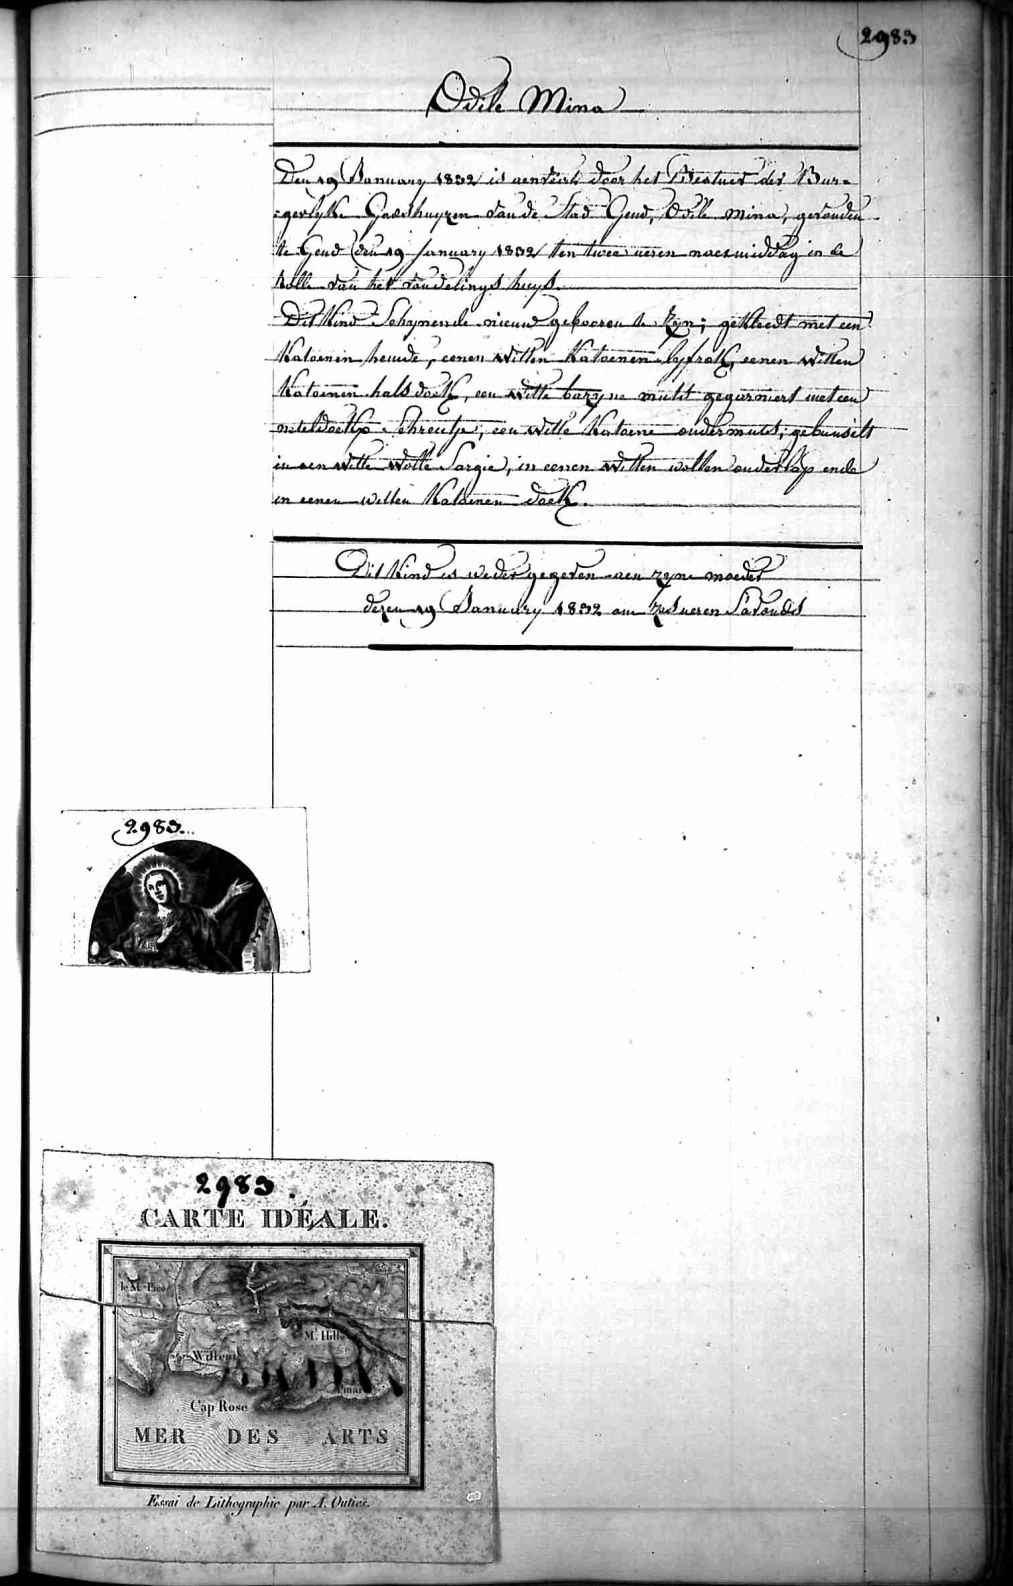 2983
Odile Mina
Den 19 January 1832 is aenveirt door het Bestuer der Bur=
=gerlyke Godshuyzen van de Stad Gend, Odile Mina, gevonden
te Gend den 19 January 1832 ten twee ueren naermiddag in de
Rolle van het vondelings huys.
Dit Kind Schynende nieuw gebooren te Zyn; gekleedt met een
Katoenen hemde, eenen witten Katoenen lyfrok, eenen witten
Katoenen halsdoek, een witte bazyne muts gegarniert met een
neteldoeksche Schreutje, een witte Katoene ondermuts; gebunselt
in een witte wolle Sargie, in eenen witten wollen onderlap ende
in eenen witten Katoenen doek.
Dit Kind is weder gegeven aen zyne moeder
dezen 19 January 1832 om zes ueren S'avonds
2983.
2983.
CARTE IDÉALE.
le Mt. Pico
Mt. Hill
Willem
Cap Rose
MER DES ARTS
Essai de Lithographie par A.